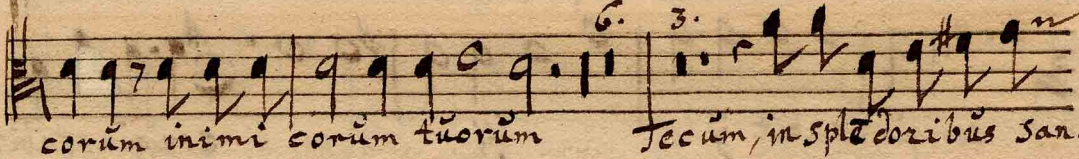 6. 3.
corum inimi corum tuorum Tecum, in splēdoribus san